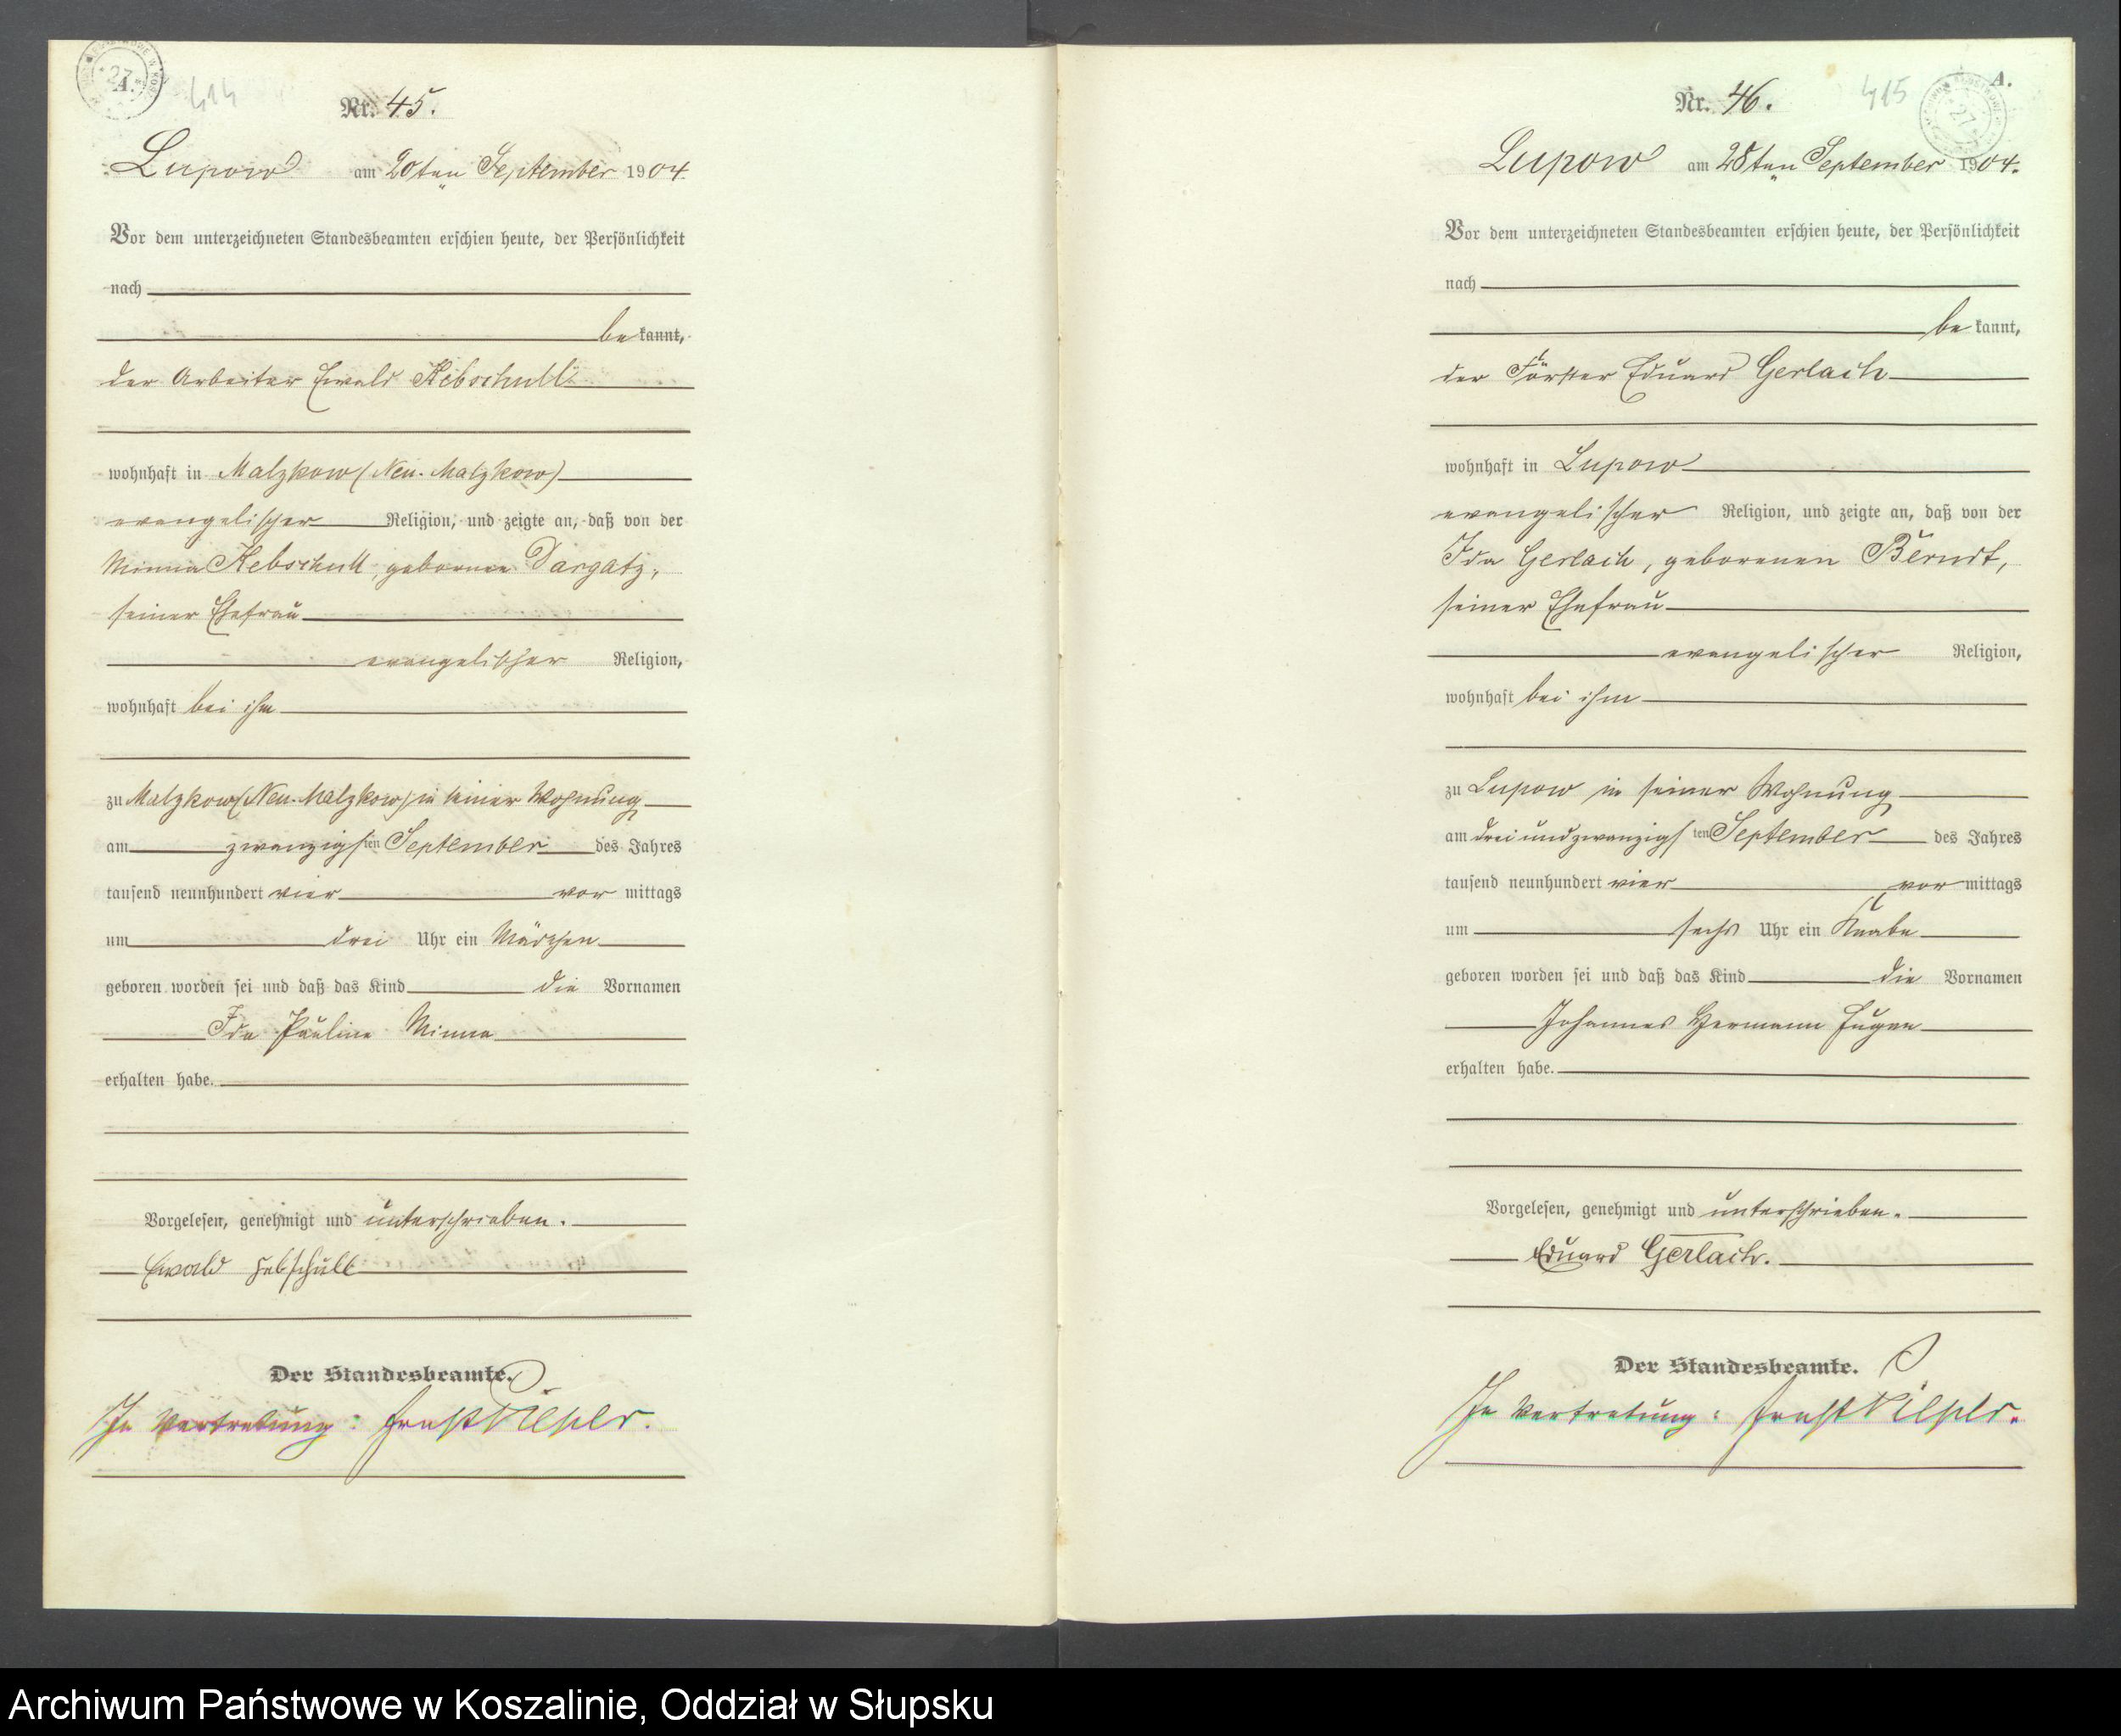 A.
414
Nr. 45.
Lupow am 20ten September 1904
Vor dem unterzeichneten Standesbeamten erschien heute, der Persönlichkeit
nach
bekannt,
der Arbeiter Ewald Kebschull
wohnhaft in Malzkow (Neu-Malzkow)
evangelischer Religion, und zeigte an, daß von der
Minna Kebschull, geborenen Dargatz,
seiner Ehefrau
evangelischer Religion,
wohnhaft bei ihm
zu Malzkow (Neu-Malzkow) in seiner Wohnung
am zwanzigsten September des Jahres
tausend neunhundert vier vormittags
um drei Uhr ein Mädchen
geboren worden sei und daß das Kind die Vornamen
Ida Pauline Minna
erhalten habe.
Vorgelesen, genehmigt und unterschrieben.
Ewald Kebschull
Der Standesbeamte.
In Vertretung: Ernst
A.
415
Nr. 46.
Lupow am 28ten September 1904.
Vor dem unterzeichneten Standesbeamten erschien heute, der Persönlichkeit
nach
bekannt,
der Förster Eduard Gerlach
wohnhaft in Lupow
evangelischer Religion, und zeigte an, daß von der
Ida Gerlach, geborenen Berndt,
seiner Ehefrau
evangelischer Religion,
wohnhaft bei ihm
zu Lupow in seiner Wohnung
am dreiundzwanzigsten September des Jahres
tausend neunhundert vier vormittags
um sechs Uhr ein Knabe
geboren worden sei und daß das Kind die Vornamen
Johannes Hermann Eugen
erhalten habe.
Vorgelesen, genehmigt und unterschrieben.
Eduard Gerlach.
Der Standesbeamte.
In Vertretung: Ernst
Archiwum Państwowe w Koszalinie, Oddział w Słupsku